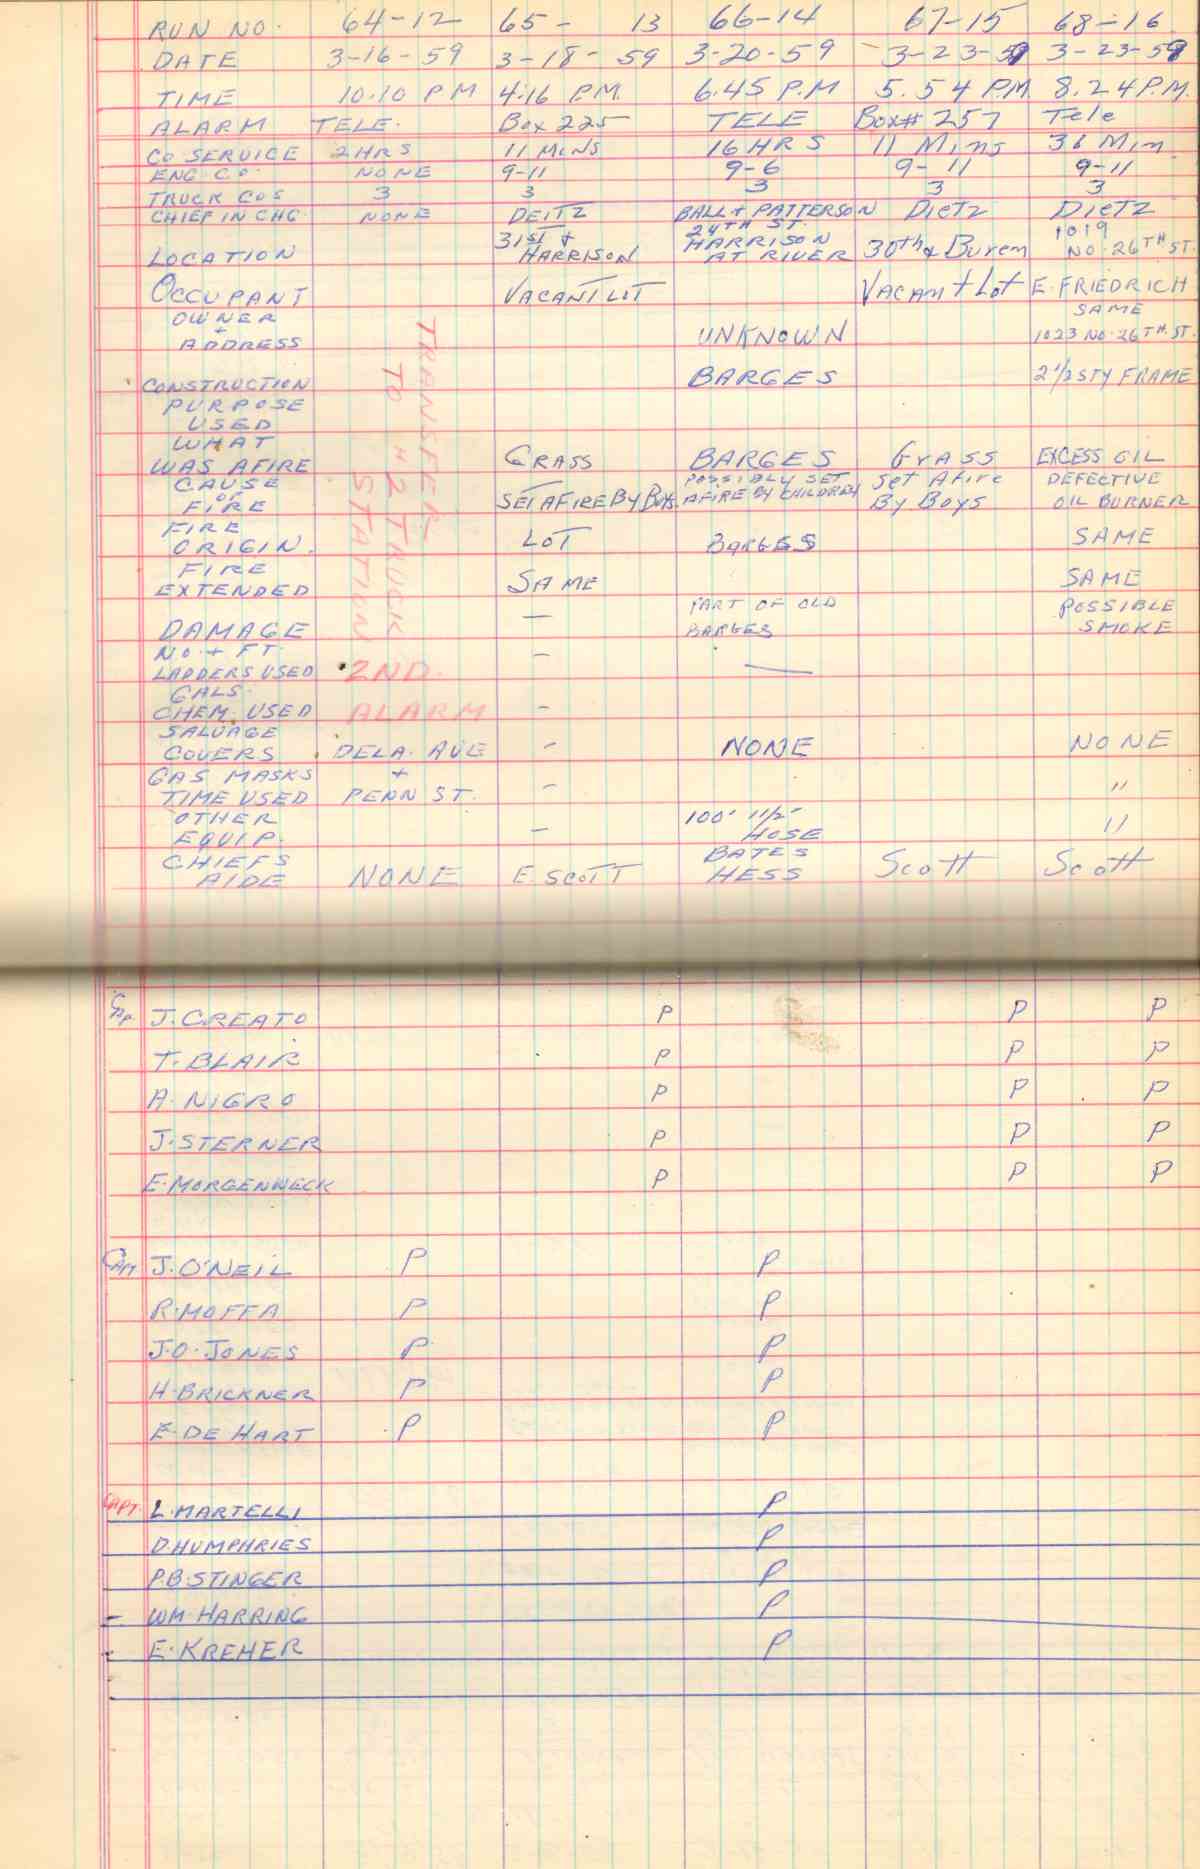 RUN NO. 64-12 65- 13 66-14 67-15 68-16
DATE 3-16-59 3-18-59 3-20-59 3-23-59 3-23-59
TIME 10.10 PM 4:16 P.M. 6.45 P.M 5.54 P.M. 8.24 P.M.
ALARM TELE. Box 225 TELE Box# 257 Tele
CO SERVICE 2 HRS 11 MINS 16 HRS 11 Mins 36 Min
ENG CO. NONE 9-11 9-6 9-11 9-11
TRUCK COS 3 3 3 3 3
CHIEF IN CHG. NONE DEITZ BALL + PATTERSON DIETZ DIETZ
24TH ST. 1019
31ST + HARRISON
LOCATION HARRISON AT RIVER 30th & Burem NO. 26TH ST.
OCCUPANT VACANT LOT Vacant Lot E. FRIEDRICH
OWNER SAME
+
ADDRESS UNKNOWN 1023 NO. 26TH ST.
CONSTRUCTION BARGES 2 1/2 STY FRAME
PURPOSE
USED
WHAT
WAS AFIRE GRASS BARGES GrASS EXCESS OIL
CAUSE POSSIBLY SET Set Afire DEFECTIVE
OF
FIRE SET AFIRE BY Boys. AFIRE BY CHILDREN By Boys OIL BURNER
FIRE
ORIGIN. LOT BARGES SAME
FIRE
EXTENDED SAME SAME
PART OF OLD POSSIBLE
DAMAGE — BARGES SMOKE
TRANSFER
TO #2 TRUCK
STATION
NO. + FT. —
LADDERS USED 2ND. —
GALS.
CHEM. USED ALARM -
SALVAGE
COVERS DELA. AVE - NONE NONE
GAS MASKS +
TIME USED PENN ST. - "
OTHER 100' 1 1/2"
EQUIP. — HOSE "
CHIEFS BATES
AIDE NONE E SCOTT HESS Scott Scott
Cap. J. CREATO P P P
T. BLAIR P P P
A. NIGRO P P P
J. STERNER P P P
E. MORGENWECK P P P
CAPT J. O'NEIL P P
R. MOFFA P P
J.O. JONES P P
H. BRICKNER P P
E. DE HART P P
CAPT. L. MARTELLI P
D. HUMPHRIES P
P.B. STINGER P
WM. HARRING P
E. KREHER P